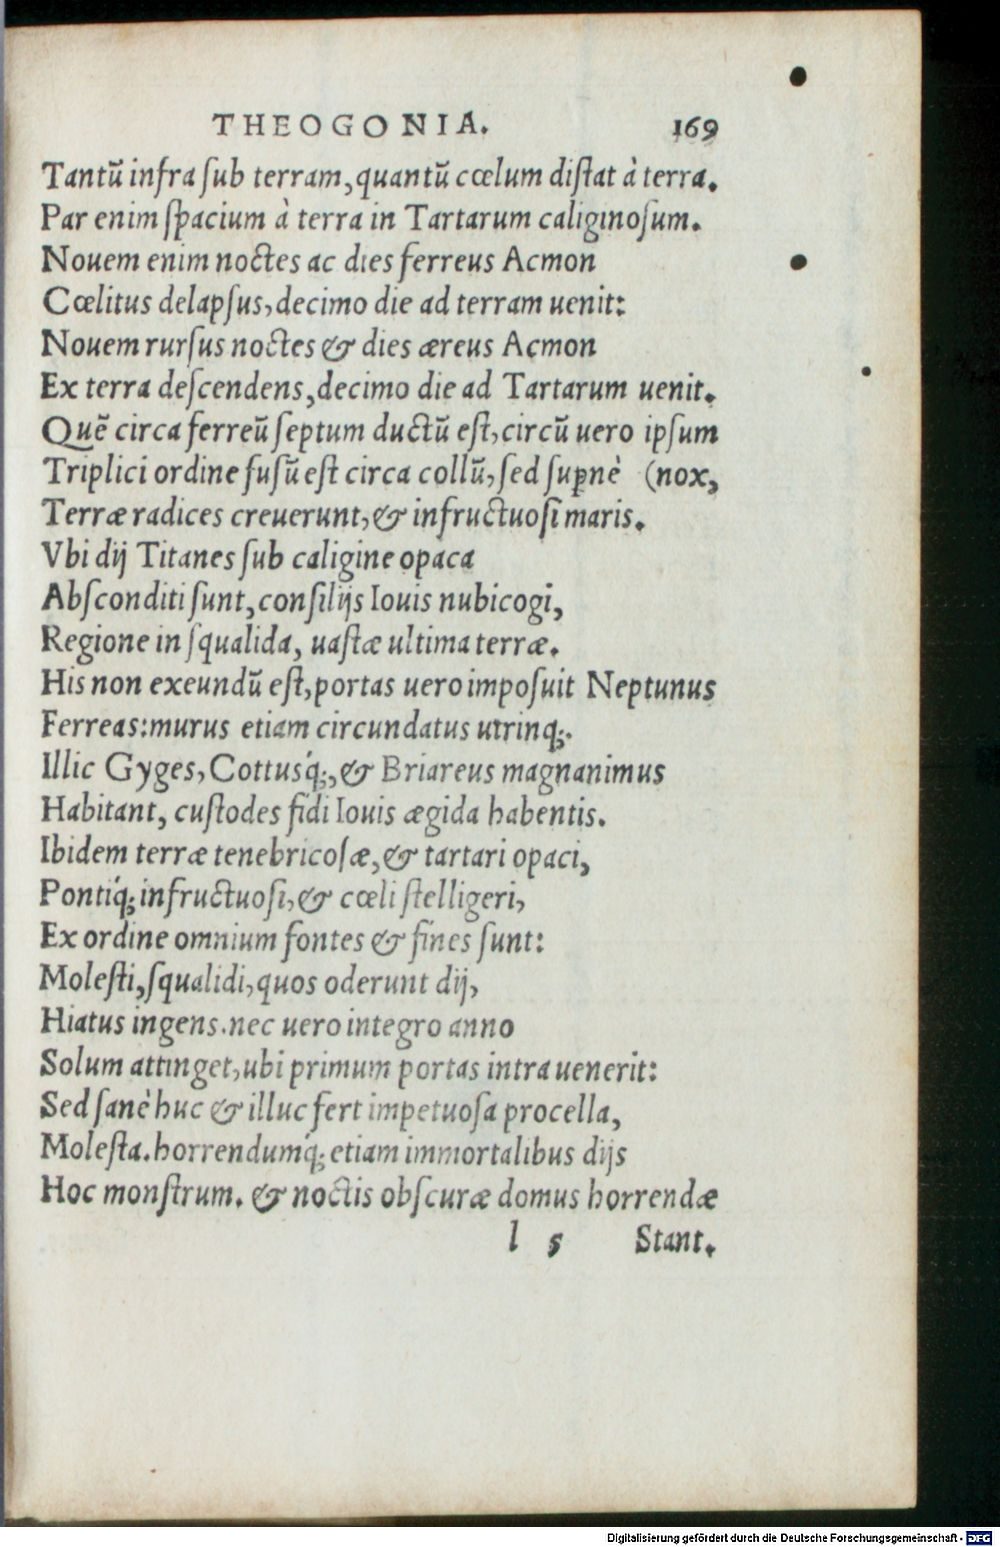 THEOGONIA. 169
Tantũ infra ſub terram, quantũ cœlum diſtat à terra.
Par enim ſpacium à terra in Tartarum caliginoſum.
Nouem enim noctes ac dies ferreus Acmon
Cœlitus delapſus, decimo die ad terram uenit:
Nouem rurſus noctes & dies æreus Acmon
Ex terra deſcendens, decimo die ad Tartarum uenit.
Quẽ circa ferreũ ſeptum ductũ eſt, circũ uero ipſum
Triplici ordine fuſũ eſt circa collũ, ſed ſuꝑnè (nox,
Terræ radices creuerunt, & infructuoſi maris.
Vbi dij Titanes ſub caligine opaca
Abſconditi ſunt, conſilijs Iouis nubicogi,
Regione in ſqualida, uaſtæ ultima terræ.
His non exeundũ eſt, portas uero impoſuit Neptunus
Ferreas: murus etiam circundatus utrinq;.
Illic Gyges, Cottusq́;, & Briareus magnanimus
Habitant, cuſtodes fidi Iouis ægida habentis.
Ibidem terræ tenebricoſæ, & tartari opaci,
Pontiq́; infructuoſi, & cœli ſtelligeri,
Ex ordine omnium fontes & fines ſunt:
Moleſti, ſqualidi, quos oderunt dij,
Hiatus ingens. nec uero integro anno
Solum attinget, ubi primum portas intra uenerit:
Sed ſanè huc & illuc fert impetuoſa procella,
Moleſta. horrendumq́; etiam immortalibus dijs
Hoc monſtrum. & noctis obſcuræ domus horrendæ
l 5 Stant.
Digitalisierung gefördert durch die Deutsche Forschungsgemeinschaft - DFG